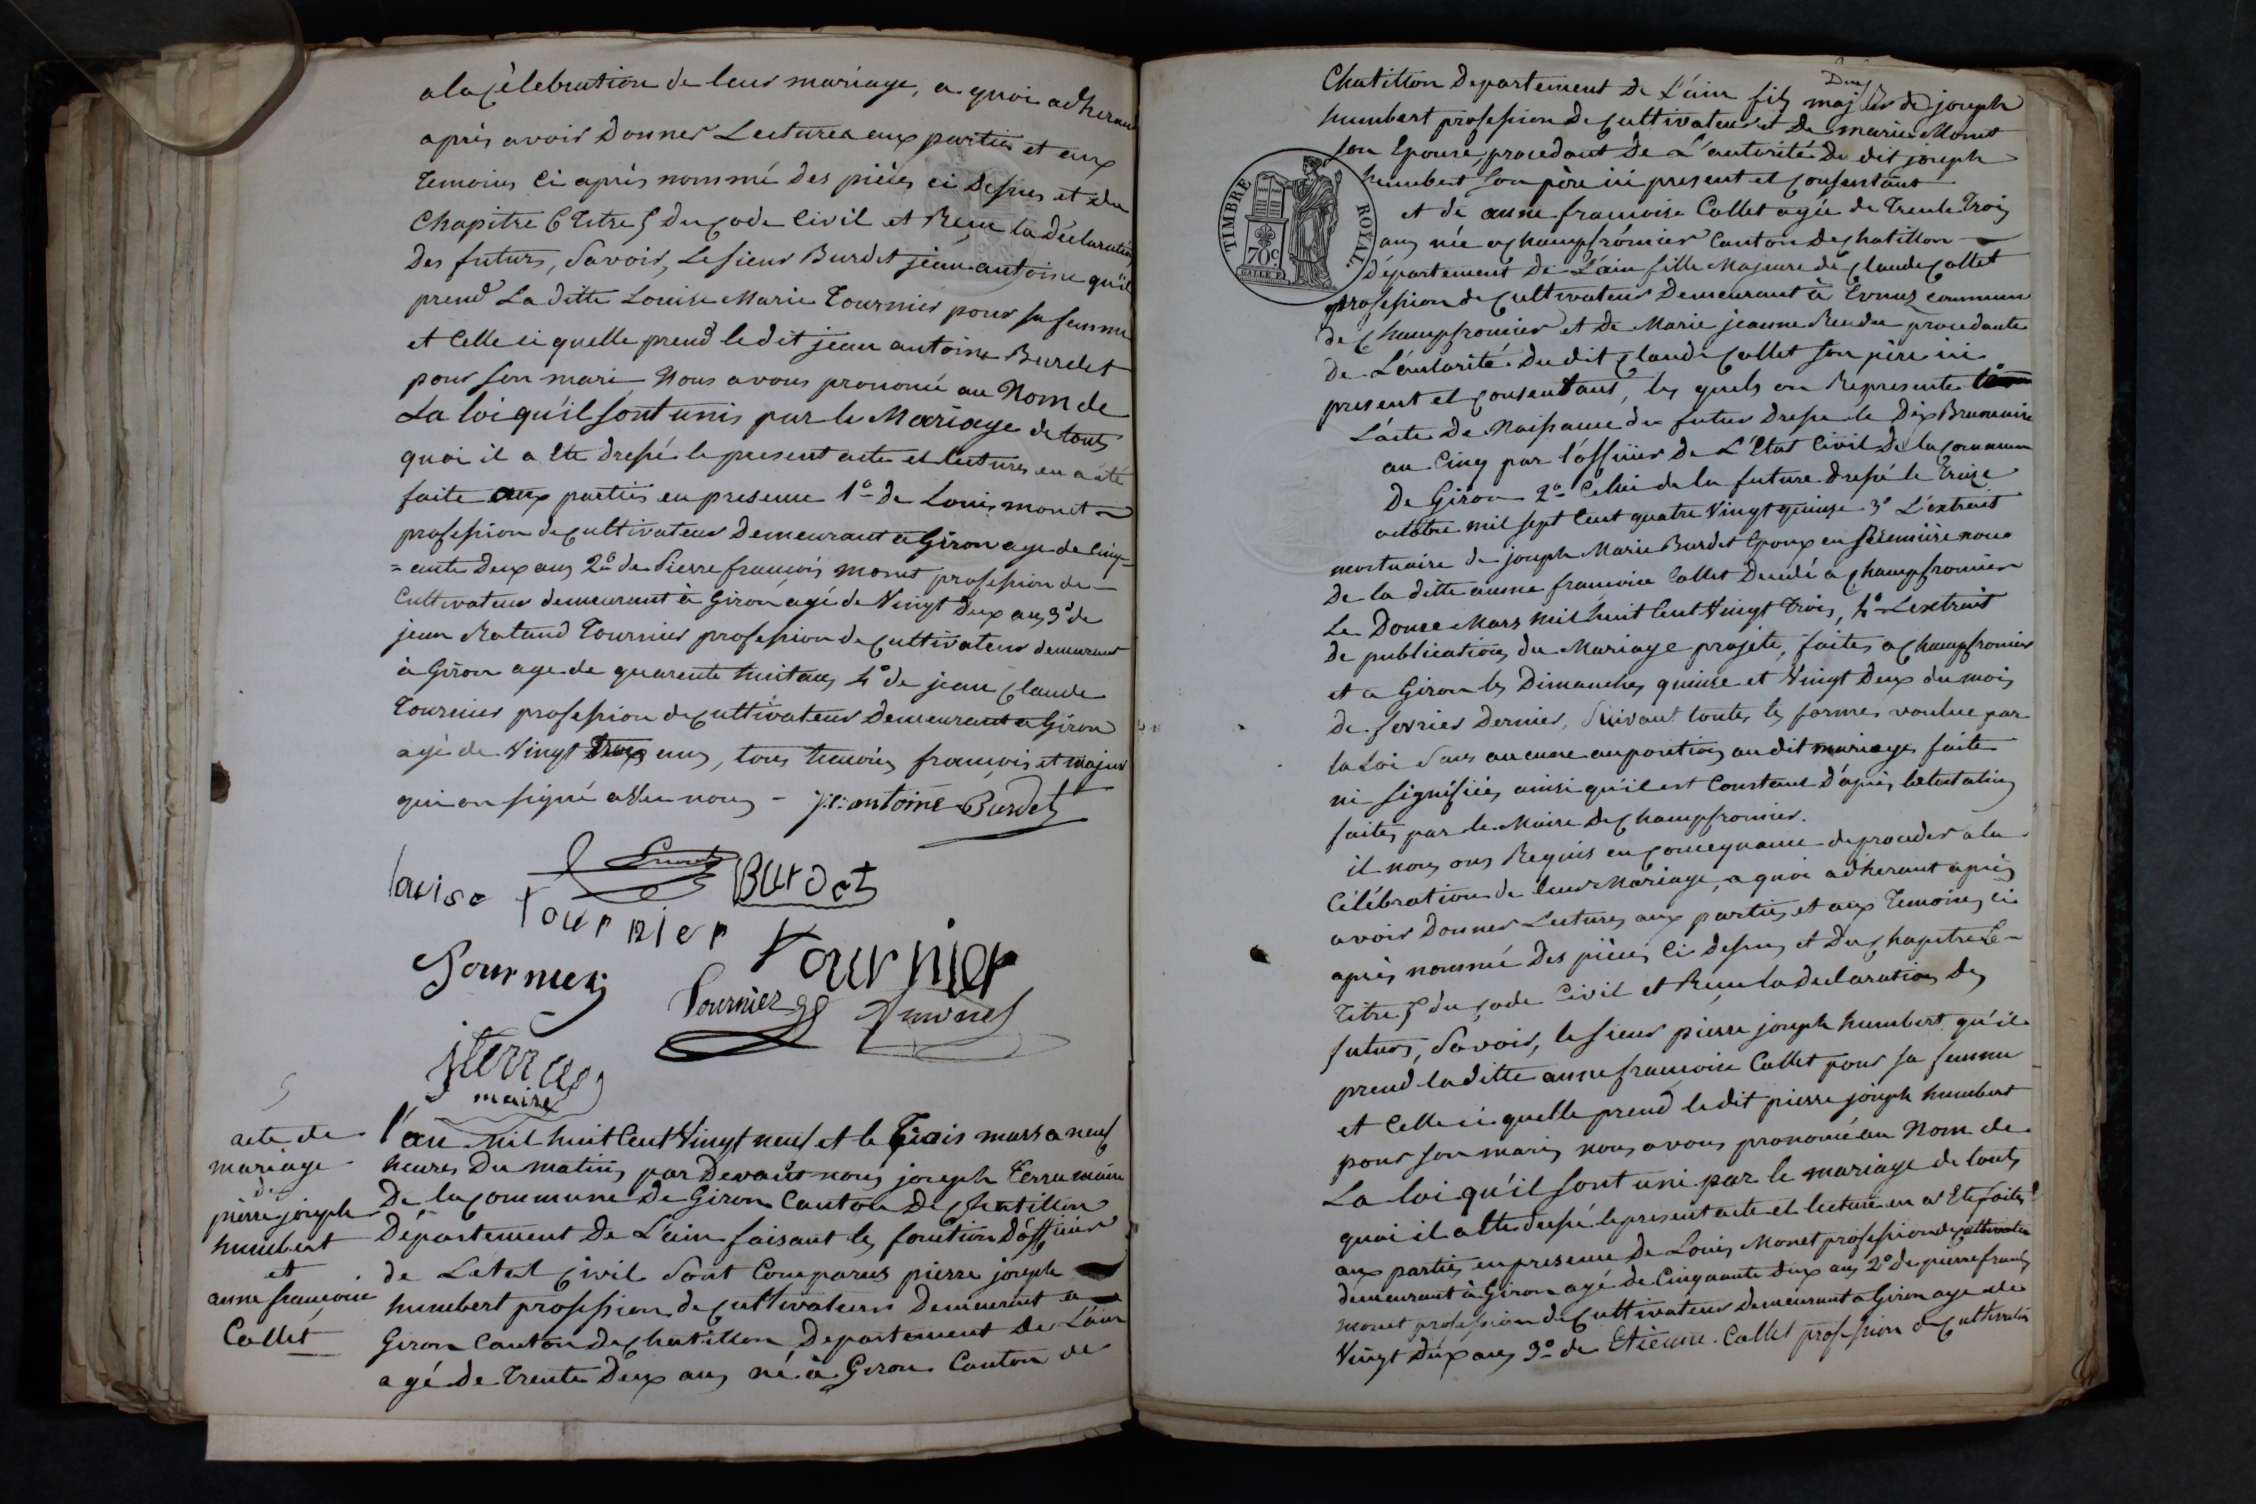 a la Célebration de leur mariage, a quoi adherant
après avoir Donner Lectures aux parties et aux
Temoins Ci après nommé des pièces ci Dessus et du
Chapitre 6 Titre 5 Du Code Civil et Reçu la Déclaration
Des futurs, Savoir, Le sieur Burdet jean antoine qu'il
prend La ditte Louise Marie Tournier pour sa femme
et Celle ci quelle prend le dit jean antoine Burdet
pour son mari Nous avons prononcé au Nom de
La loi qu'il sont unis par le Mariage de touts
quoi il a Ete dressé le present acte et lectures en a été
faite aux parties en presence 1º de Louis monet
profession de Cultivateur Demeurant a Giron age de Cinq=
=ante Deux ans 2º de Pierre françois monet profession de
Cultivateur demeurant à Giron agé de Vingt Deux ans 3º de
jean Roland Tournier profession de Cultivateur demeurant
à Giron age de quarente huit ans 4º de jean Claude
Tournier profession de Cultivateur Demeurant a Giron
agé de Vingt trois ans, tous temoins françois et majeur
qui on signé avec nous - jn: antoine Burdet
louise tournier Burdet
Tournier tournier
Tournier monet
jterraz
maire
acte de
mariage
de
pierre joseph
humbert
et
anne françoise
Collet
l'an mil huit Cent Vingt neuf et le Trois mars a neuf
heures Du matins par Devant nous joseph Terraz maire
De la Commune De Giron Canton De Chatillon
Département De L'ain faisant les fonction D'officier
de L'état Civil Sont Comparus pierre joseph
humbert profession de Cultivateurs Demeurent a
Giron Canton De Chatillon Departement De L'ain
agé De Trente Deux ans né à Giron Canton de
Deuf
Chatillon Departement De L'ain fils majeur de joseph
humbert profession De Cultivateur et De marie Monet
son Epouse, procedant De L'autorité Du dit joseph
humbert Son père ici present et Consentant
TIMBRE ROYAL
70c
et de anne francoise Collet agée de Trente Trois
ans née a Champfrómier Canton De Chatillon
Département De L'ain fille Majeure de Claude Collet
profession de Cultivateur Demeurant à commun
de Champfromier et de Marie jeanne Rendu procedante
De L'autorité Du dit Claude Collet Son père ici
present et Consentant, les quels on Representé 1º
L'acte De Naissance du futur Dressé le Dix Brumaire
an Cinq par l'officier De L'Etat Civil De la Commune
De Giron 2º Celui de la future dressé le Treize
octobre mil sept Cent quatre Vingt quinze 3º L'extrait
mortuaire de joseph Marie Burdet Epoux en premiere noce
De la ditte anne francoise Collet Decedé a Champfromier
Le Douce Mars mil huit Cent Vingt Trois, 4º L'extrait
De publications du Mariage projeté, faites a Champfromier
et a Giron les Dimanches quinse et Vingt Deux du mois
de fevrier Dernier, Suivant toutes les formes voulue par
la Loi Sans aucune aupositions au dit mariage faite
ni signifiées ainsi qu'il est Constant D'après
faites par le Maire De Champfromier.
il nous ons Requis en Conceqnance de proceder a la
Célébration de leur Mariage, a quoi adherant après
avoir Donner Lectures aux parties et aux Temoins ci
après nommé Des pièces Ci Dessus et Du Chapitre 6
Titre 5 du Code Civil et Reçu la Declaration Des
futurs, Savoir, le sieur pierre joseph humbert qu'il
prend la ditte anne francoise Collet pour sa femme
et Celle ci quelle prend le dit pierre joseph humbert
pour son mari, nous avons prononcé au Nom de
La loi qu'il sont uni par le mariage de touts
quoi il a Ete dressé le present acte et lecture en a Ete faites
aux parties en presence De Louis Monet profession de Cultivateur
demeurant à Giron agé de Cinquante deux ans 2º de pierre françois
monet profession de Cultivateur demeurant a Giron age de
Vingt Deux ans 3º de Etienne Collet profession de Cultivateur